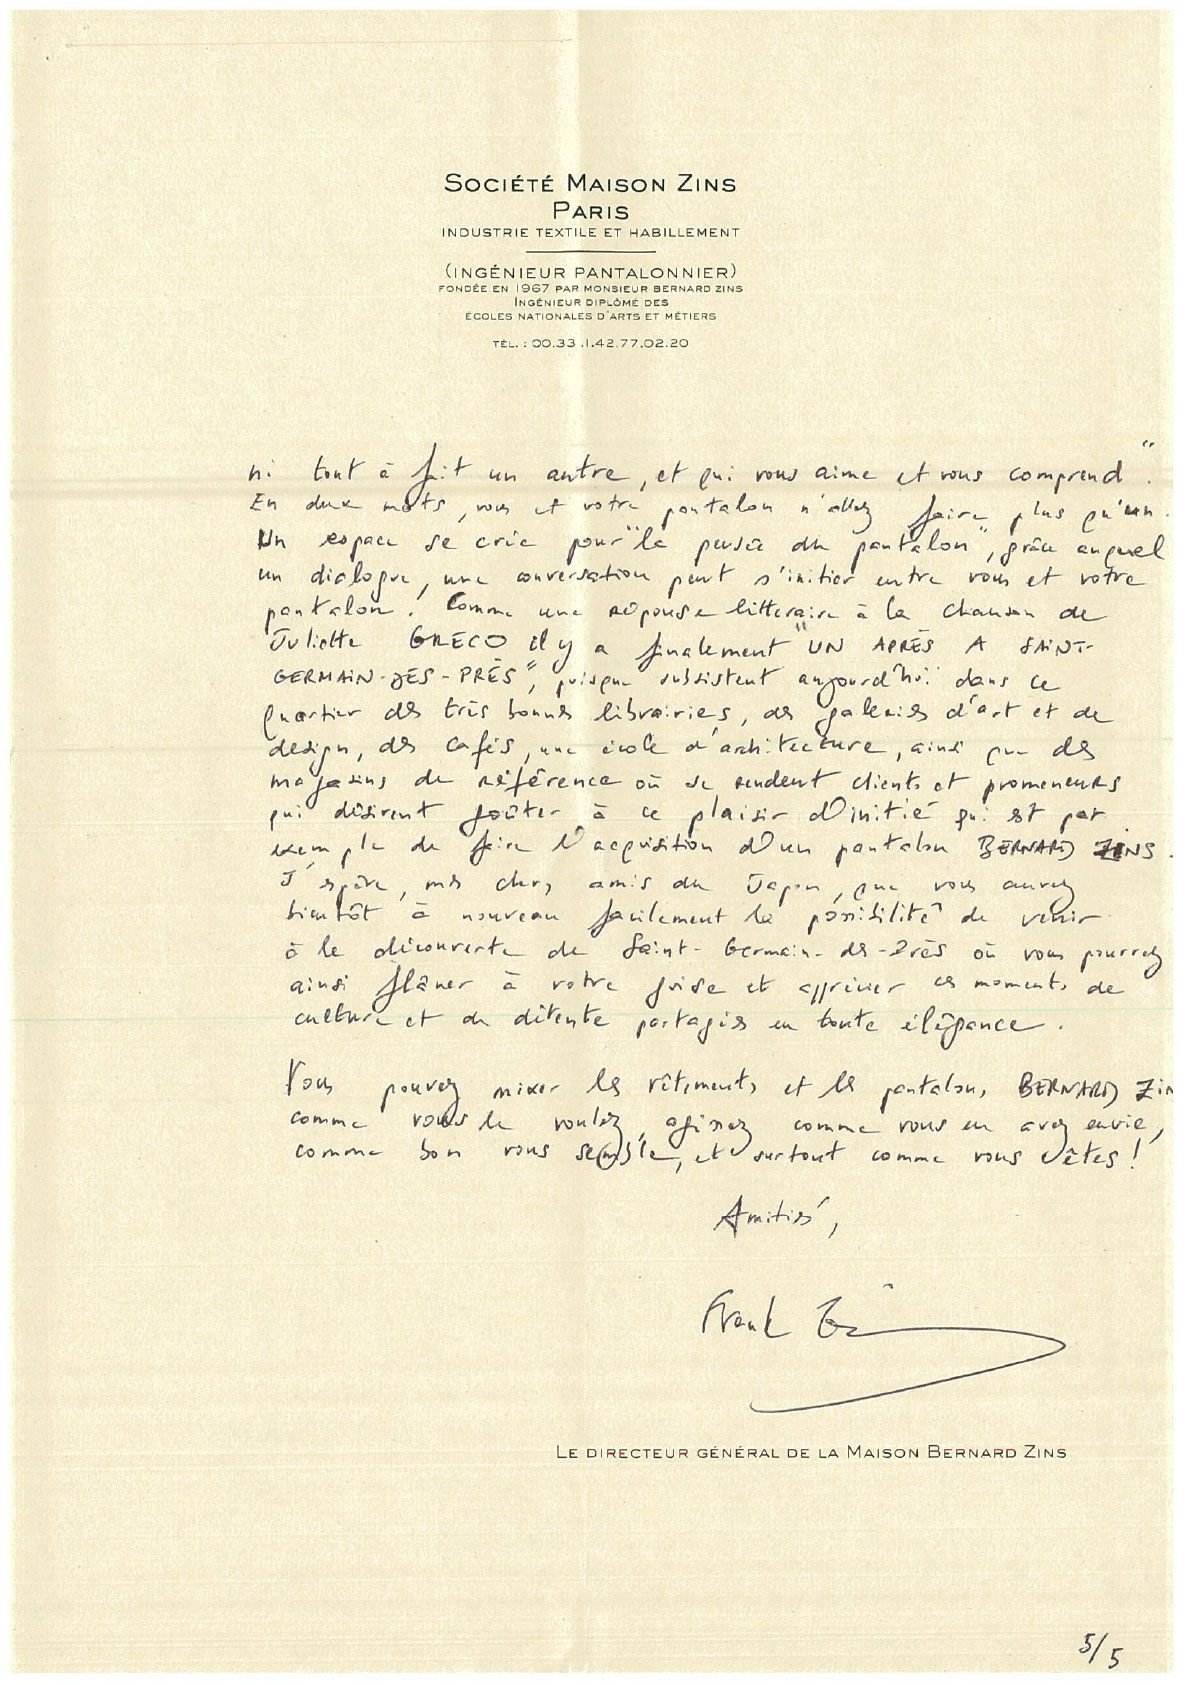 SOCIÉTÉ MAISON ZINS
PARIS
INDUSTRIE TEXTILE ET HABILLEMENT
(INGÉNIEUR PANTALONNIER)
FONDÉE EN 1967 PAR MONSIEUR BERNARD ZINS
INGÉNIEUR DIPLÔMÉ DES
ÉCOLES NATIONALES D'ARTS ET MÉTIERS
TÉL. : 00.33.1.42.77.02.20
ni tout à fait un autre, et qui vous aime et vous comprend".
En deux mots, vous et votre pantalon n'allez faire plus qu'un.
Un espace se crée pour "la pensée du pantalon", grâce auquel
un dialogue, une conversation peut s'initier entre vous et votre
pantalon. Comme une réponse littéraire à la chanson de
Juliette GRECO il y a finalement "UN APRÈS A SAINT-
GERMAIN-DES-PRÈS", puisque subsistent aujourd'hui dans ce
quartier des très bonnes librairies, des galeries d'art et de
design, des cafés, une école d'architecture, ainsi que des
magasins de référence où se rendent clients et promeneurs
qui désirent goûter à ce plaisir d'initié qui est par
exemple de faire l'acquisition d'un pantalon BERNARD ZINS.
J'espère, mes chers amis du Japon, que vous aurez
bientôt à nouveau facilement la possibilité de venir
à la découverte de Saint-Germain-des-Près où vous pourrez
ainsi flâner à votre guise et apprécier ces moments de
culture et de détente partagés en toute élégance.
Vous pouvez mixer les vêtements et les pantalons BERNARD ZIN
comme vous le voulez, agissez comme vous en avez envie,
comme bon vous semble, et surtout comme vous êtes !
Amitiés,
Frank Zins
LE DIRECTEUR GÉNÉRAL DE LA MAISON BERNARD ZINS
5/5